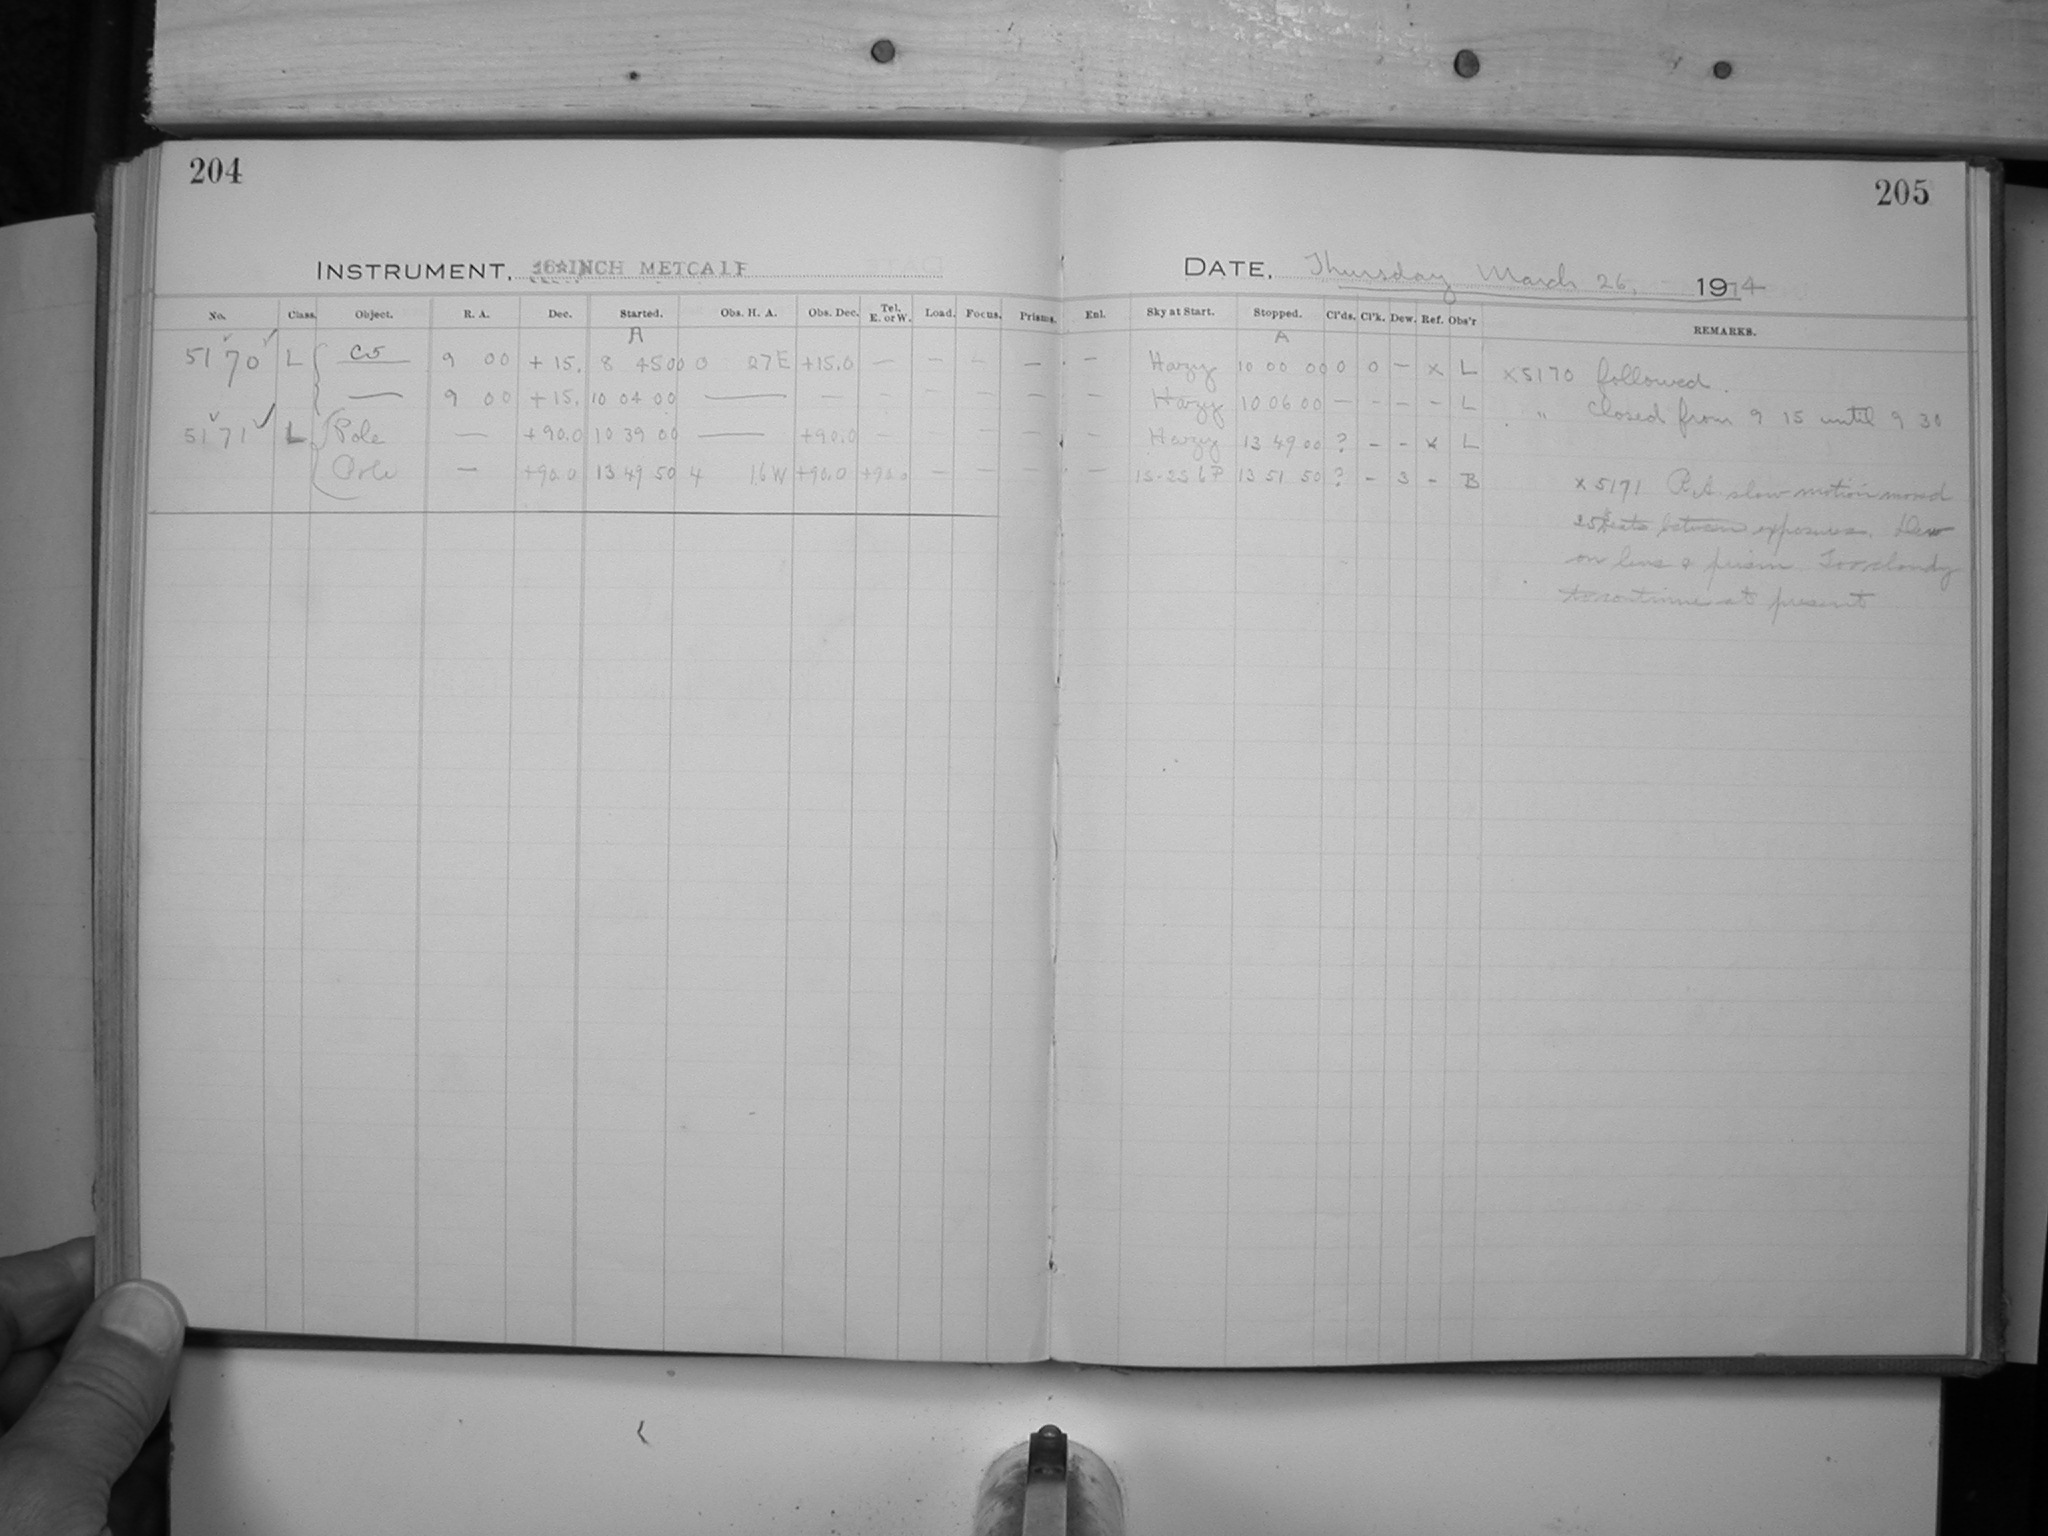 204
205
INSTRUMENT, 16 INCH METCALF
DATE, Thursday March 26, 1914
No. Class. Object. R. A. Dec. Started. Obs. H. A. Obs. Dec. Tel. E. or W. Load. Focus. Prisms. Enl. Sky at Start. Stopped. Cl'ds. Cl'k. Dew. Ref. Obs'r REMARKS.
A A
5170 L C5 9 00 +15. 8 45 00 0 27E +15.0 — — — — — Hazy 10 00 00 0 0 — x L x5170 followed.
— 9 00 +15. 10 04 00 — — — — — — — Hazy 10 06 00 — — — — L " Closed from 9 15 until 9 30
5171 L Pole — +90.0 10 39 00 — +90.0 — — — — — Hazy 13 49 00 ? — — x L
Pole — +90.0 13 49 50 4 16W +90.0 +90.0 — — — — 13 51 50 ? — 3 — B x 5171 R.A. slow motion moved
between exposures. Dew
on lens & prism. Too cloudy
to continue at present